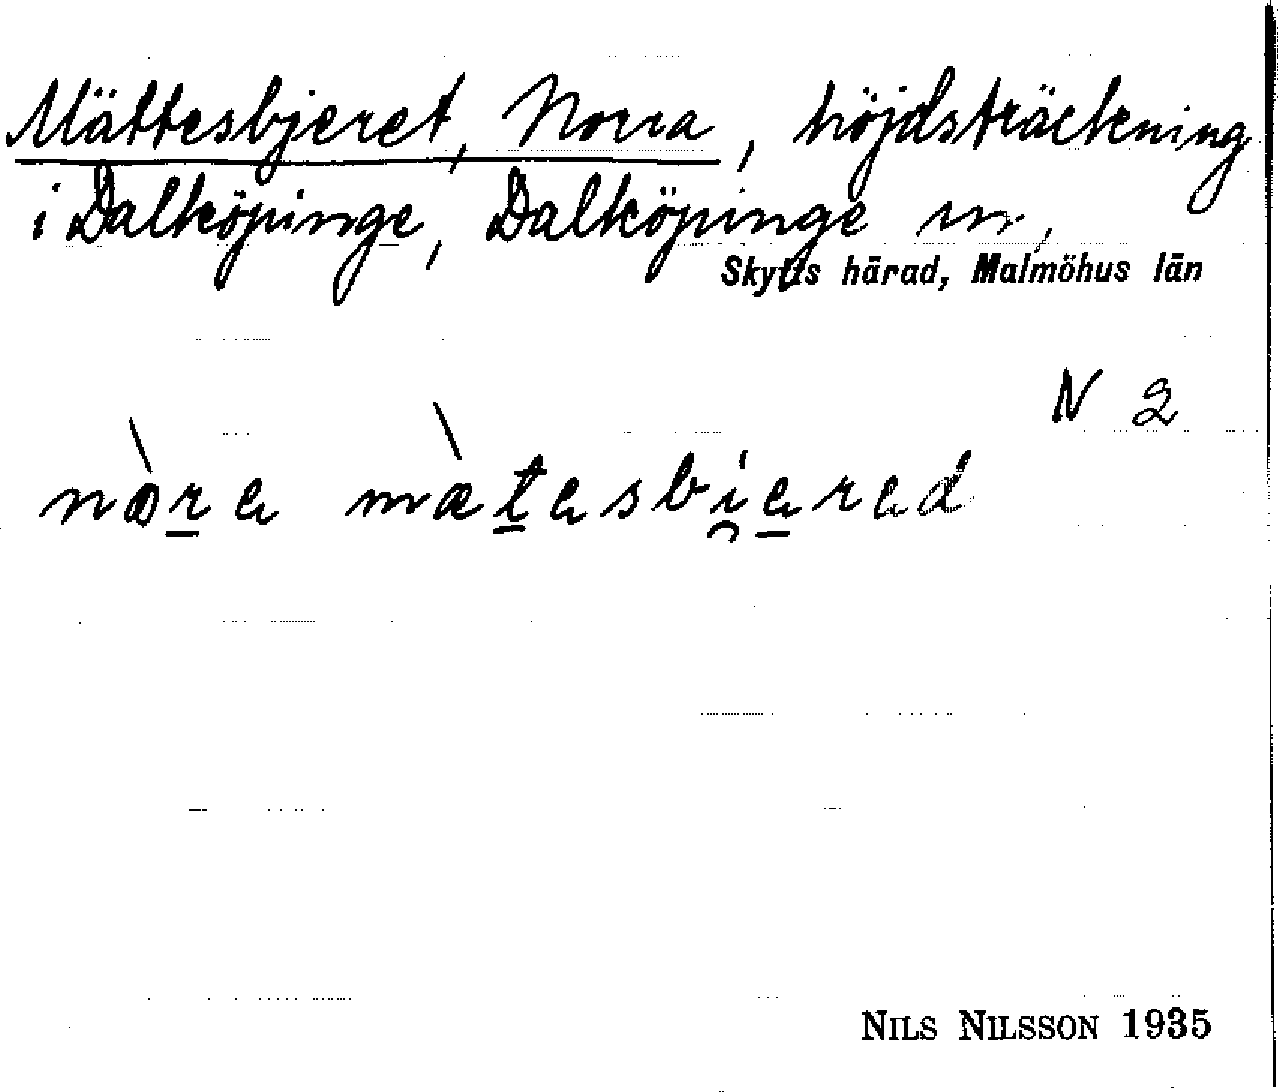 Mättesbjeret, Norra, höjdsträckning
i Dalköpinge, Dalköpinge sn,
Skytts härad, Malmöhus län
N 2
nòre mætesbiered
NILS NILSSON 1935